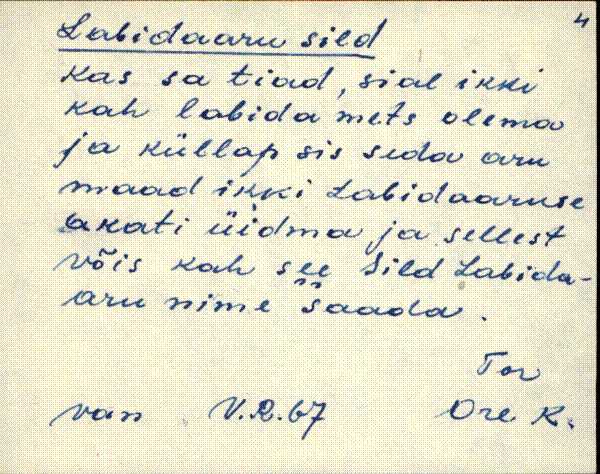 4
Labidaaru sild
kas sa tiad, sial ikki
kah labida mets olema
ja küllap sis seda aru
maad ikki Labidaaruse
akati üidma ja sellest
võis kah see sild Labida-
aru nime saada.
Tor
van V.R.67 Ore K.